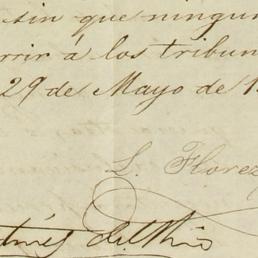 sin que ningun
rrir á los tribun
29 de Mayo de 1
L. Florez
del Rio